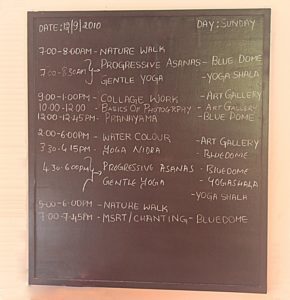 DATE: 12/9/2010 DAY: SUNDAY
7:00-8:00AM - NATURE WALK
PROGRESSIVE ASANAS - BLUE DOME
7:00-8:30AM
GENTLE YOGA - YOGA SHALA
9:00-1:00PM - COLLAGE WORK - ART GALLERY
10:00-12:00 - BASICS OF PHOTOGRAPHY - ART GALLERY
12:00-12:45PM - PRANAYAMA - BLUE DOME
2:00-6:00PM - WATER COLOUR - ART GALLERY
3:30-4:15PM - YOGA NIDRA - BLUEDOME
4:30-6:00PM PROGRESSIVE ASANAS - BLUEDOME
GENTLE YOGA - YOGASHALA
- YOGA SHALA
5:00-6:00PM - NATURE WALK
7:00-7:45PM - MSRT/CHANTING - BLUEDOME